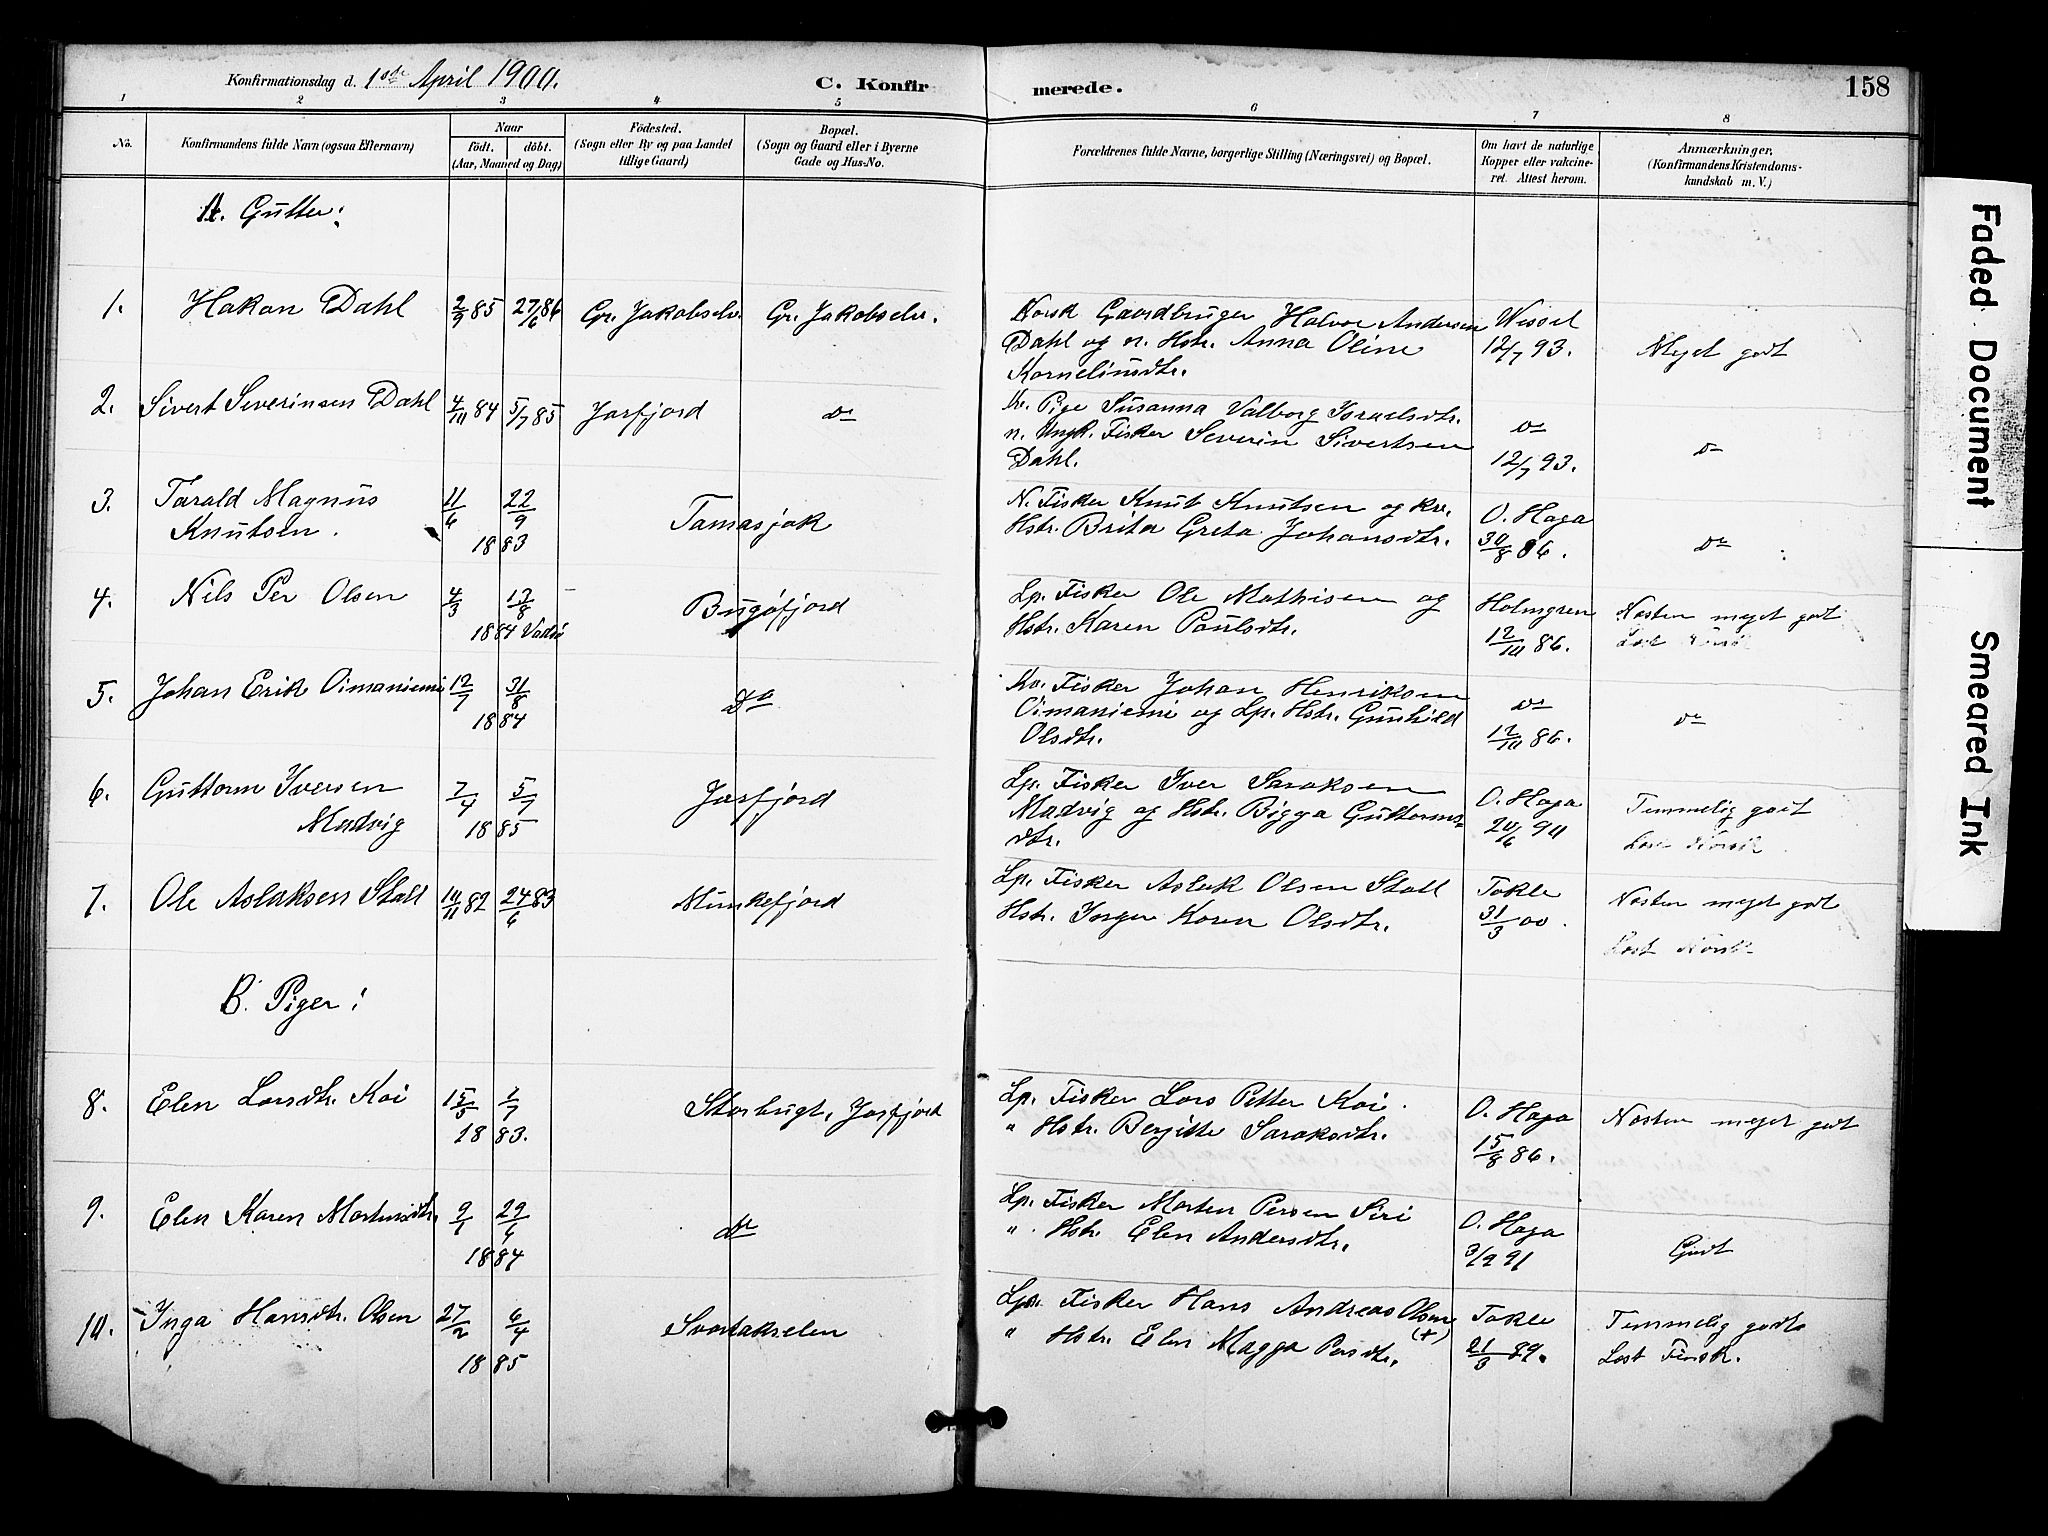 Konfirmationsdag d. 1ste April 1900.
C. Konfir
merede.
158
1 2 3 4 5 6 7 8
No.
Konfirmandens fulde Navn (ogsaa Efternavn)
Naar
födt. döbt.
(Aar, Maaned og Dag)
Födested.
(Sogn eller By og paa Landet
tillige Gaard)
Bopæl.
(Sogn og Gaard eller i Byerne
Gade og Hus-No.
Forældrenes fulde Navne, borgerlige Stilling (Næringsvei) og Bopæl.
Om havt de naturlige
Kopper eller vakcine-
ret. Attest herom.
Anmærkninger.
(Konfirmandens Kristendoms-
kundskab m. V.)
A. Gutter:
1. Hakon Dahl 2/9 85 27/6 86 Gr. Jakobselv. Gr. Jakobselv.
Norsk Gaardbruger Halvor Andersen
Dahl og n. Hstr. Anna Oline
Kornelinsdtr.
Wessel
12/7 93.
Meget godt
2. Sivert Severinsen Dahl 4/10 84 5/7 85 Jarfjord do
Kv. Pige Susanna Valborg Israelsdtr.
n. Ungk. Fisker Severin Sivertsen
Dahl.
do
12/7 93.
do
3. Tarald Magnus
Knutsen.
11/6 22/9
1883
Tamasjok
N. Fisker Knut Knutsen og kv.
Hstr. Brita Greta Johansdtr.
O. Haga
30/8 86.
do
4. Nils Per Olsen 4/3 13/8
1884 Vadsö
Bugöfjord
Lp. Fisker Ole Mathisen og
Hstr. Karen Paulsdtr.
Holmgren
12/10 86.
Næsten meget godt
Læst Norsk
5. Johan Erik Oimaniemi 12/7 31/8
1884
do
Kv. Fisker Johan Henriksen
Oimaniemi og Lp. Hstr. Gunhild
Olsdtr.
do
12/10 86.
do
6. Guttorm Iversen
Madvig
7/4 5/7
1885
Jarfjord
Lp. Fisker Iver Saraksen
Madvig og Hstr. Bigga Guttorms-
dtr.
O. Haga
20/6 90
Temmelig godt
Læst Norsk
7. Ole Aslaksen Stall 10/11 82 24/6 83 Munkefjord
Lp. Fisker Aslak Olsen Stall
Hstr. Inger Karen Olsdtr.
Takle
31/3 00.
Næsten meget godt
Læst Norsk
B. Piger:
8. Elen Larsdtr. Kai 15/5 1/7
1883.
Storbugt, Jarfjord
Lp. Fisker Lars Petter Kai.
" Hstr. Bergitte Saraksdtr.
O. Haga
15/8 86.
Næsten meget godt
9. Elen Karen Mortensdtr. 9/1 29/6
1884
do
Lp. Fisker Morten Persen Siri
" Hstr. Elen Andersdtr.
O. Haga
3/9 91
Godt
10. Inga Hansdtr. Olsen 27/2 6/4
1885
Svartakselen
Lp. Fisker Hans Andreas Olsen
" Hstr. Elen Magga Persdtr. (+)
Takle
21/3 89.
Temmelig godt
Læst Finsk.
Faded Document
Smeared Ink